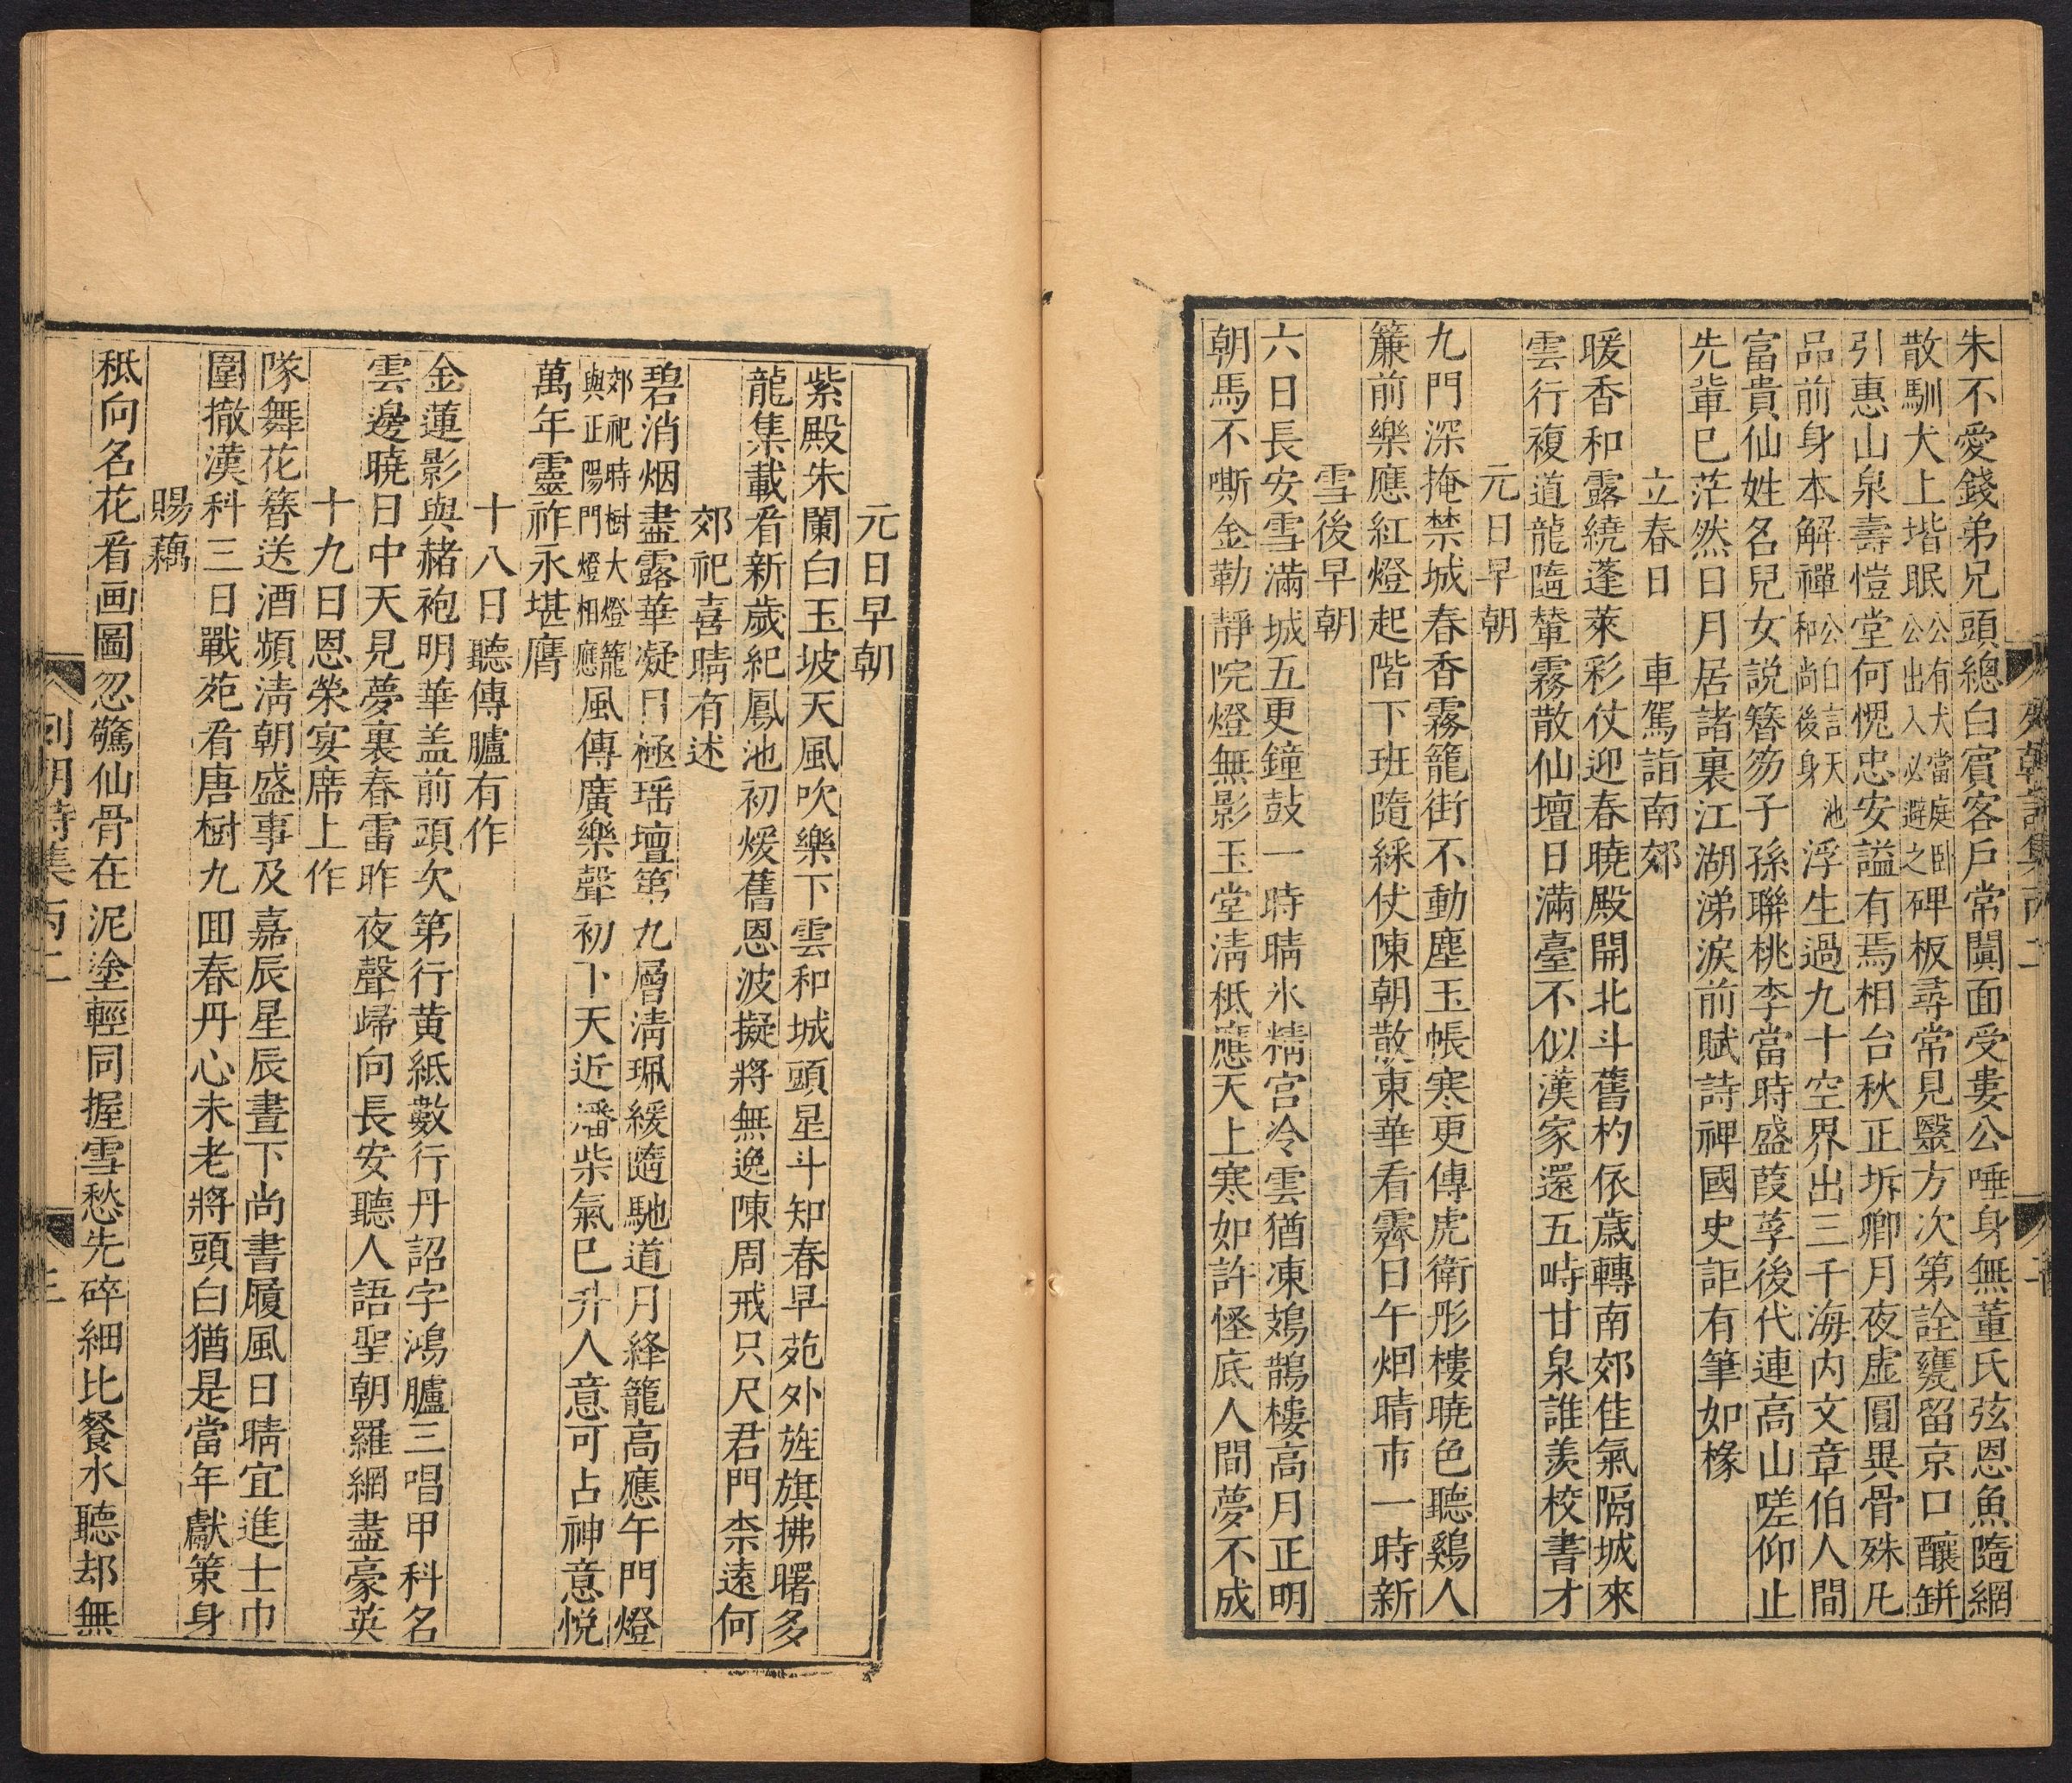 朱不愛錢弟兄頭總白賓客戶常闐面受婁公唾身無董氏弦恩魚隨網
散馴犬上堦眠公有犬當庭臥公出入必避之碑板尋常見毉方次第詮甕留京口釀缾
引惠山泉壽愷堂何愧忠安謚有焉相台秋正坼卿月夜虛圓異骨殊凡
品前身本解禪公自言天池和尚後身浮生過九十空界出三千海内文章伯人間
富貴仙姓名兒女説簪笏子孫聯桃李當時盛葭莩後代連高山嗟仰止
先輩已茫然日月居諸裏江湖涕淚前賦詩禆國史詎有筆如椽
立春日　車駕詣南郊
暖香和露繞蓬萊彩仗迎春曉殿開北斗舊杓依歲轉南郊佳氣隔城來
雲行複道龍隨輦霧散仙壇日滿臺不似漢家還五畤甘泉誰羨校書才
元日早朝
九門深掩禁城春香霧籠街不動塵玉帳寒更傳虎衛彤樓曉色聽鷄人
簾前樂應紅燈起階下班隨綵仗陳朝散東華看霽日午烟晴市一時新
雪後早朝
六日長安雪滿城五更鐘鼓一時晴氷精宮冷雲猶凍鳷鵲樓高月正明
朝馬不嘶金勒靜院燈無影玉堂淸秪應天上寒如許怪底人間夢不成
列朝詩集丙二
元日早朝
紫殿朱闌白玉坡天風吹樂下雲和城頭星斗知春早苑外旌旗拂曙多
龍集載看新歲紀鳳池初煖舊恩波擬將無逸陳周戒只尺君門柰遠何
郊祀喜晴有述
碧消烟盡露華凝月極瑶壇第九層淸珮緩隨馳道月絳籠高應午門燈
郊祀時樹大燈籠與正陽門燈相應風傳廣樂聲初下天近燔柴氣已升人意可占神意悦
萬年靈祚永堪膺
十八日聽傳臚有作
金蓮影與赭袍明華盖前頭次第行黄紙數行丹詔字鴻臚三唱甲科名
雲邊曉日中天見夢裏春雷昨夜聲歸向長安聽人語聖朝羅網盡豪英
十九日恩榮宴席上作
隊舞花簪送酒頻淸朝盛事及嘉辰星辰晝下尚書履風日晴宜進士巾
圍撤漢科三日戰苑看唐樹九回春丹心未老將頭白猶是當年獻策身
賜藕
秪向名花看画圖忽驚仙骨在泥塗輕同握雪愁先碎細比餐氷聽却無
列朝詩集丙二
三